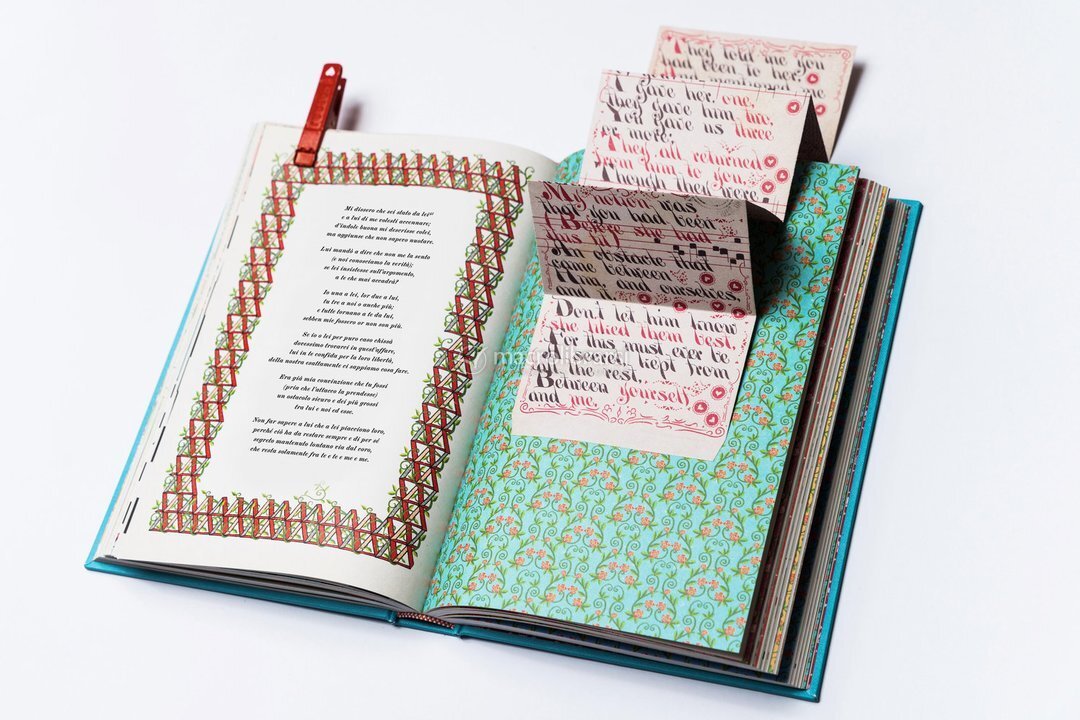 Mi dissero che sei stato da lei
e a lui di me volesti accennare;
d'indole buona mi descrisse colei,
ma aggiunse che non sapevo nuotare.
Lui mandò a dire che non me la sento
(e noi conosciamo la verità);
se lei insistesse sull'argomento,
a te che mai accadrà?
Io una a lei, lor due a lui,
tu tre a noi o anche più;
e tutte tornano a te da lui,
sebben mie fossero or non son più.
Se io o lei per puro caso chissà
dovessimo trovarci in quest'affare,
lui in te confida per la loro libertà,
della nostra esattamente ei sappiamo cosa fare.
Era già mia convinzione che tu fossi
(pria che l'attacco la prendesse)
un ostacolo sicuro e dei più grossi
tra lui e noi ed esse.
Non far sapere a lui che a lei piacciono loro,
perché ciò ha da restare sempre e di per sé
segreto mantenuto lontano via dal coro,
che resta solamente fra te e te e me e me.
They told me you
had been to her,
and mentioned me
I gave her one,
they gave him two,
You gave us three
or more;
They all returned
from him to you,
Though they were
My notion was
that you had been
Before she had
this fit
An obstacle that
came between
Him, and ourselves,
and it
Don't let him know
she liked them best,
For this must ever be
a secret, kept from
all the rest,
Between yourself
and me.